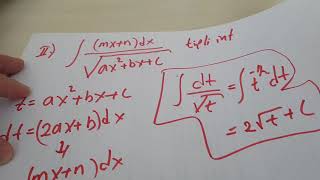 II) ∫ (mx+n)dx / √(ax²+bx+c) tipli int
t = ax²+bx+c
dt = (2ax+b)dx
(mx+n)dx
∫ dt/√t = ∫ t^(-1/2) dt
= 2√t + C